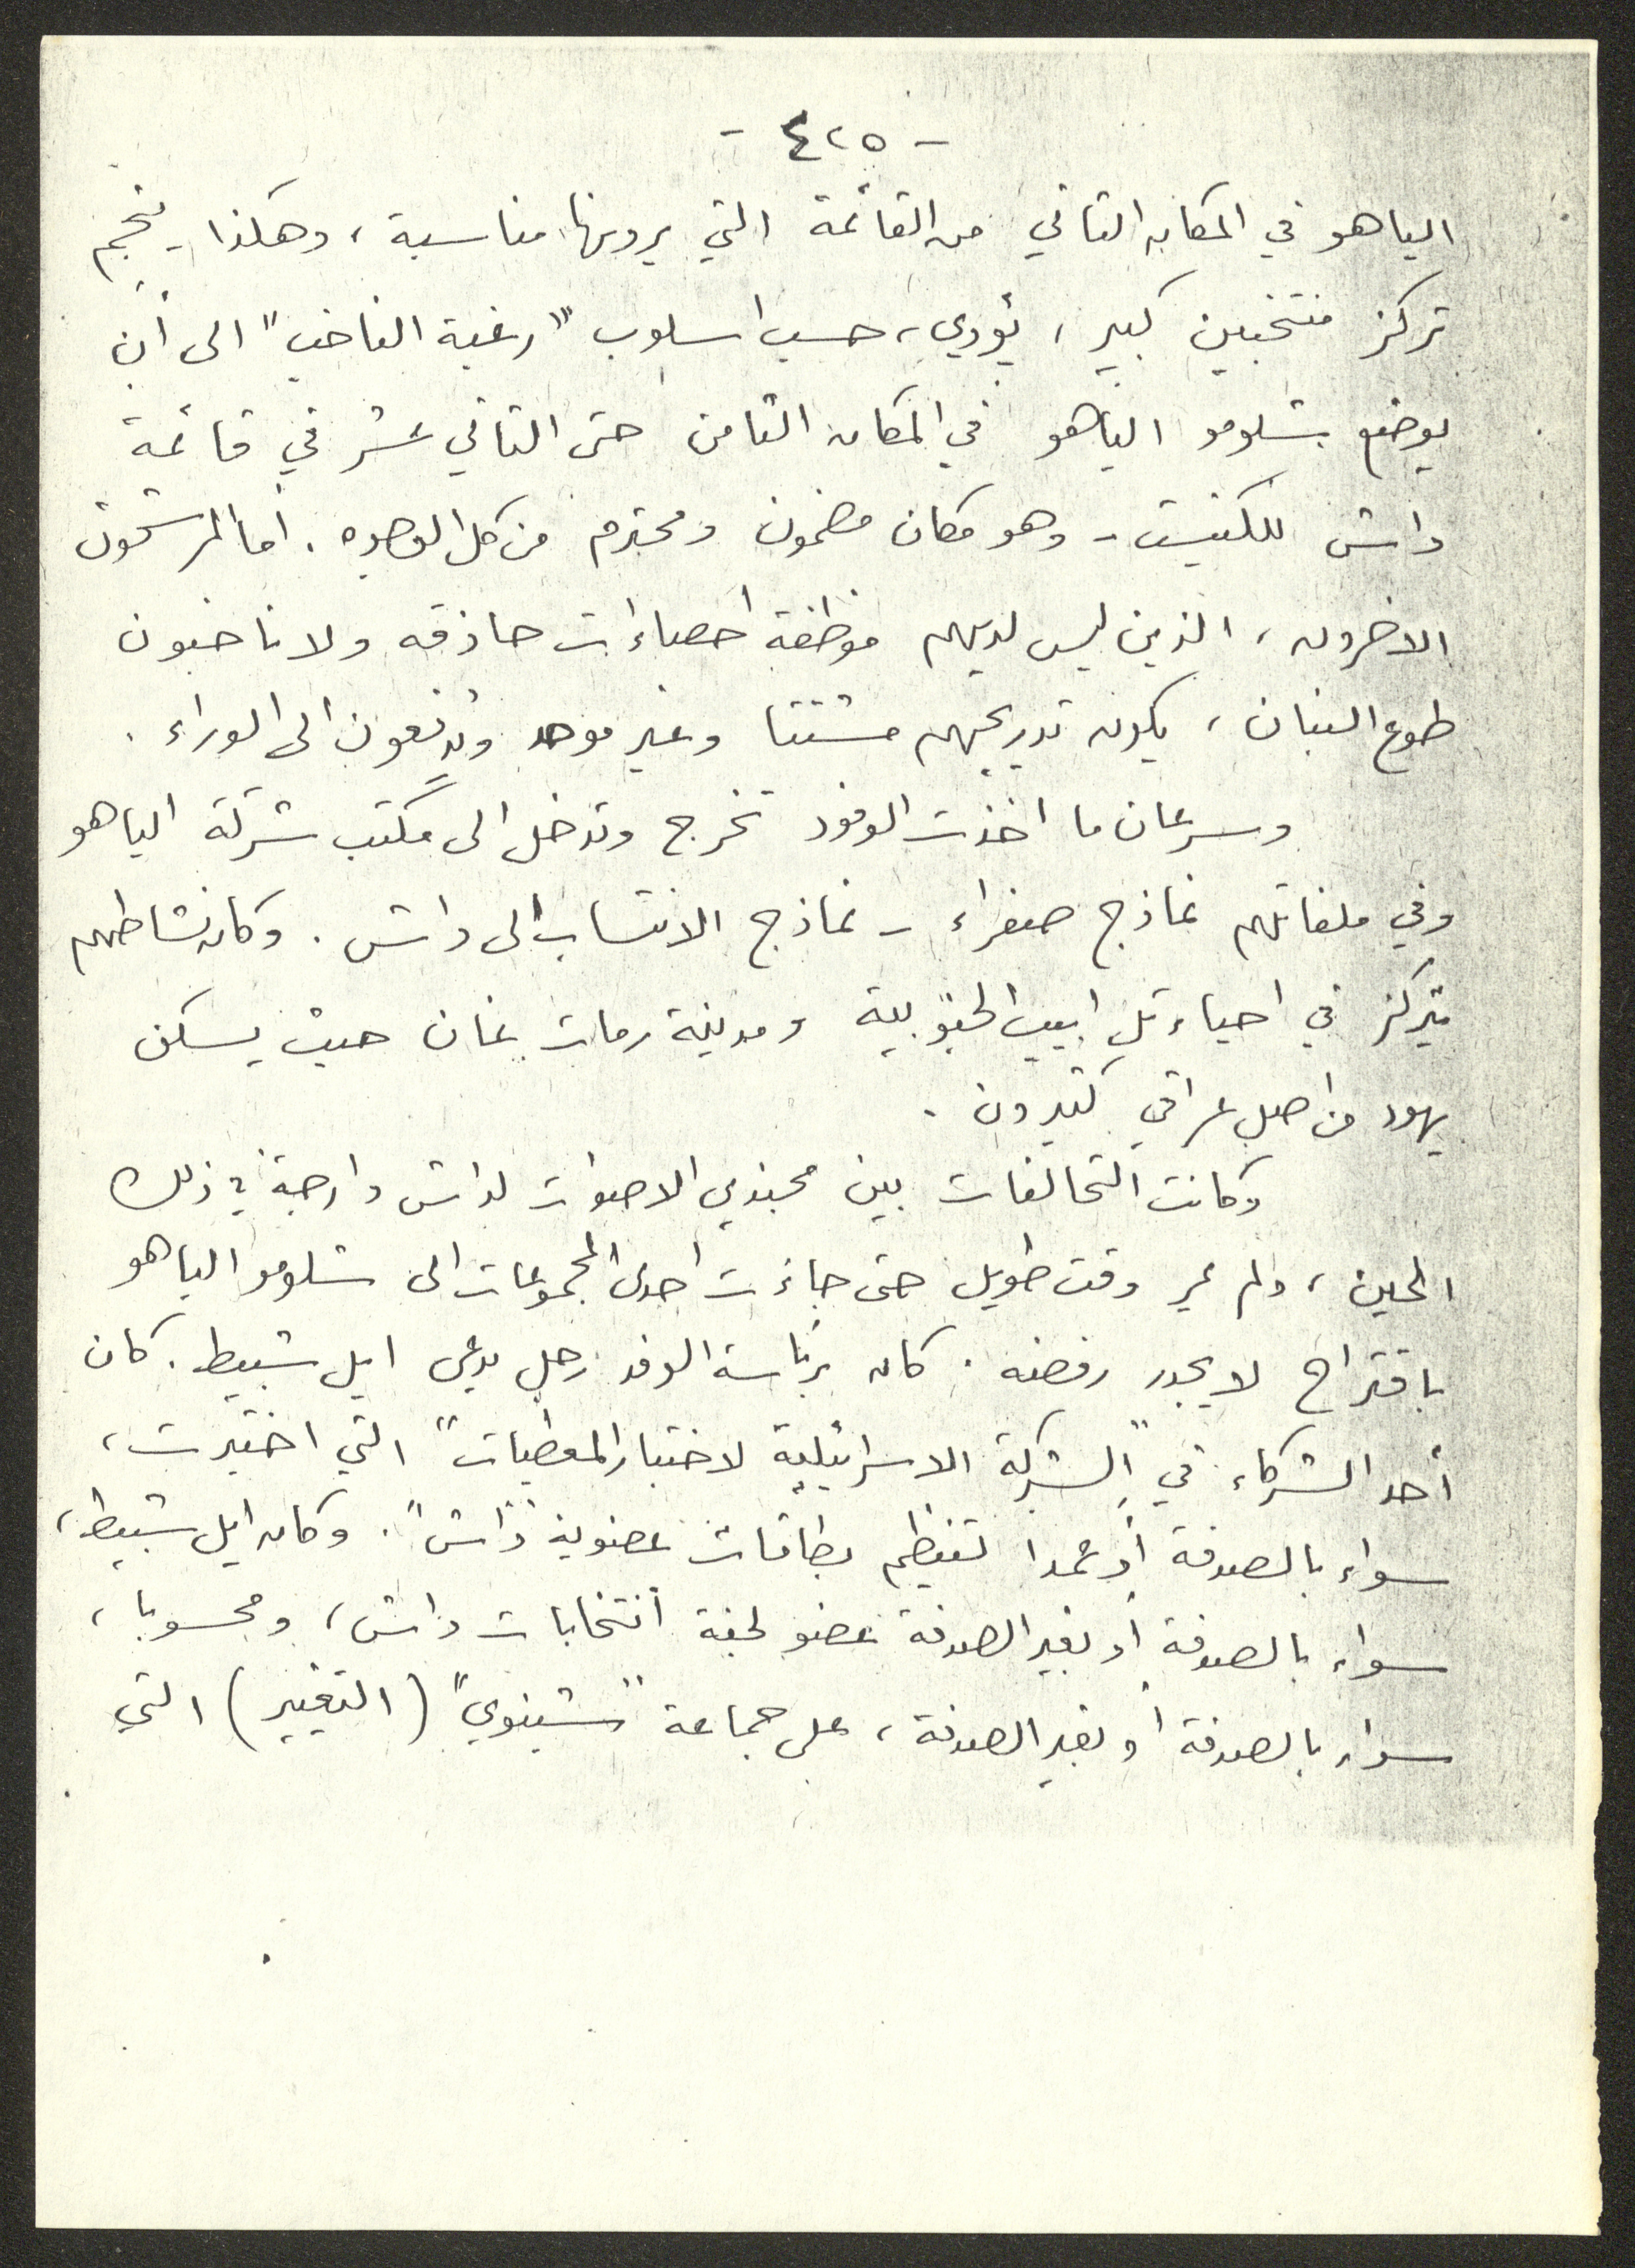 - ٤٢٥ -
الياهو في المكان الثاني من القائمة التي يرونها مناسبة، وهكذا ينجم
تركز منتخبين كبير، يؤدي، حسب اسلوب "رغبة الناخب" الى أن
يوضع شلومو الياهو في المكان الثامن حتى الثاني عشر في قائمة
داش للكنيست - وهو مكان مضمون ومحترم من كل الوجوه. أما المرشحون
الاخرون، الذين ليس لديهم موظفة احصاءات حاذقه ولا ناخبون
طوع البنان، يكون تدريجهم مشتتا وغير موحد ويُدفعون الى الوراء.
وسرعان ما اخذت الوفود تخرج وتدخل الى مكتب شركة الياهو
وفي ملفاتهم نماذج صفراء - نماذج الانتساب الى داش. وكان نشاطهم
يتركز في احياء تل ابيب الجنوبية ومدينة رمات غان حيث يسكن
يهود من اصل عراقي كثيرون.
وكانت التحالفات بين مجندي الاصوات لداش دارجة في ذلك
الحين، ولم يمر وقت طويل حتى جاءت احدى المجموعات الى شلومو الياهو
باقتراح لا يجدر رفضه. كان برئاسة الوفد رجل يدعى ايل شبيط. كان
أحد الشركاء في "الشركة الاسرائيلية لاختبار المعطيات" التي اختيرت،
سواء بالصدفة أو عمدا لتنظيم بطاقات عضوية "داش". وكان ايل شبيط،
سواء بالصدفة أو بغير الصدفة عضو لجنة انتخابات داش، ومحسوبا،
سواء بالصدفة أو بغير الصدفة، على جماعة "شينوي" (التغيير) التي